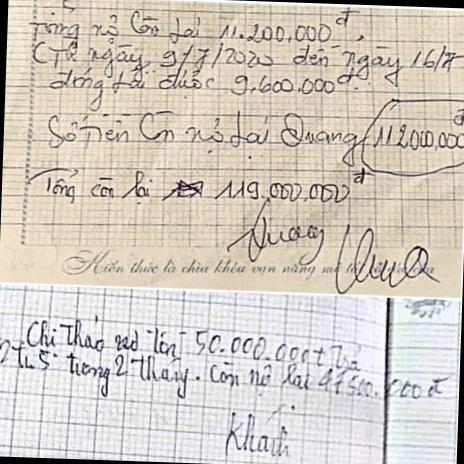 Tổng nợ Còn lại 11.200.000đ,
(Từ ngày 9/7/2020 đến ngày 16/7
đóng lãi được 9.600.000đ.
Số Tiền Còn nợ lại Quang 112000.000đ
Tổng còn lại 119.000.000đ
Quang
Kiến thức là chìa khóa vạn năng mở
Chị Thảo nợ tôn 50.000.000t Trả
2tr5 trong 2 tháng. Còn nợ lại 47500.000đ
Khanh